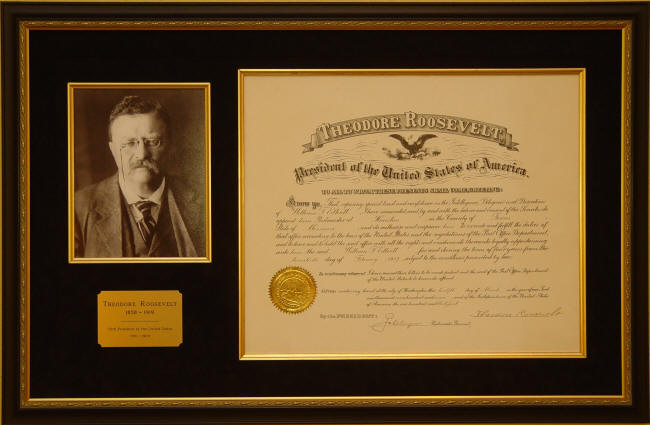 THEODORE ROOSEVELT
1858 - 1919
26th President of the United States
1901 - 1909
THEODORE ROOSEVELT,
President of the United States of America.
TO ALL TO WHOM THESE PRESENTS SHALL COME, GREETING:
Know ye, That, reposing special trust and confidence in the Intelligence, Diligence and Discretion
of William I have nominated, and, by and with the advice and consent of the Senate, do
appoint him Postmaster of in the County of
State of and do authorize and empower him to execute and fulfill the duties of
that office according to the laws of the United States and the regulations of the Post Office Department,
and to have and to hold the said office with all the rights and emoluments thereunto legally appertaining
unto him the said William for and during the term of four years from the
day of subject to the conditions prescribed by law.
In testimony whereof, I have caused these letters to be made patent and the seal of the Post Office Department
of the United States to be hereunto affixed.
Given under my hand at the city of Washington the day of in the year of our Lord
one thousand nine hundred and and of the Independence of the United States
of America the one hundred and
By the PRESIDENT:
Theodore Roosevelt
Postmaster General.